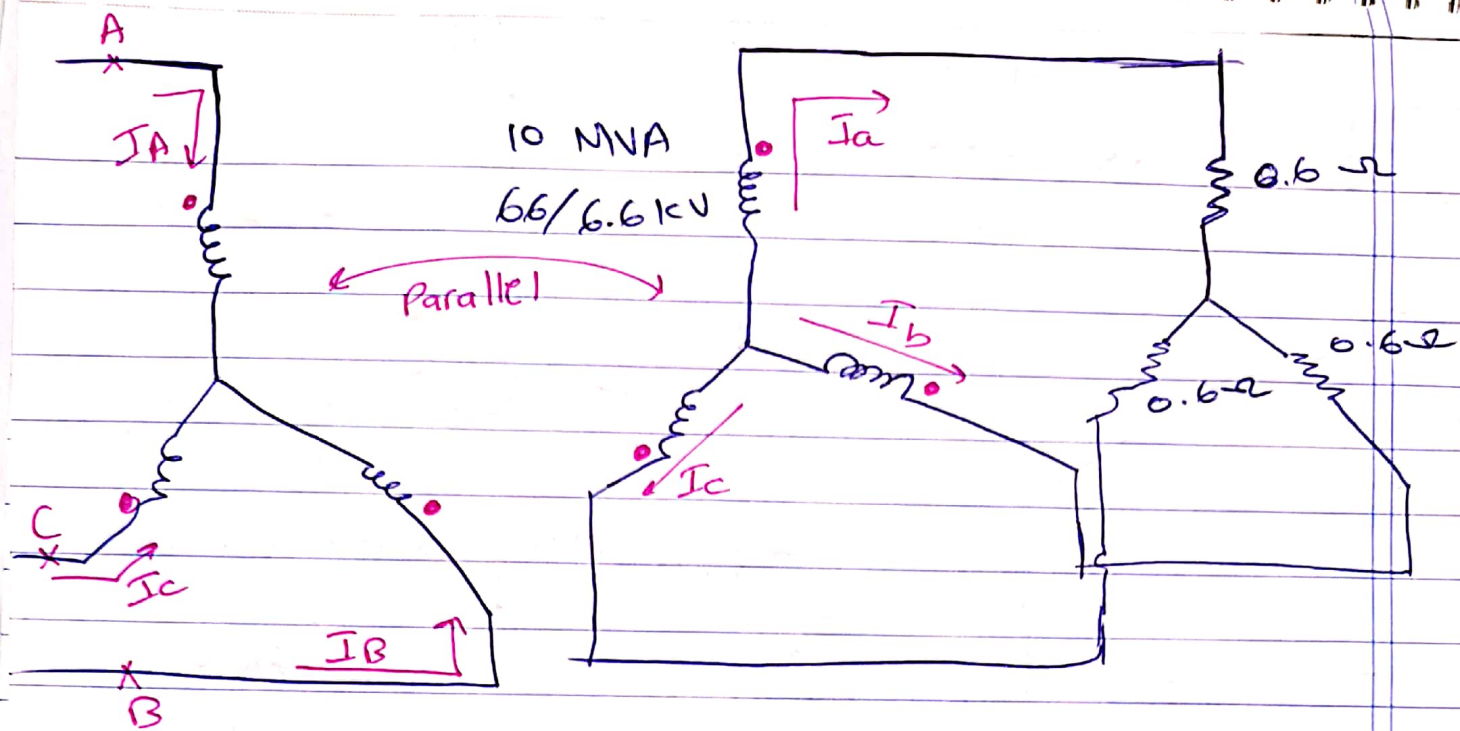 A
IA
10 MVA
66/6.6 kV
Parallel
Ia
0.6 Ω
Ib
0.6Ω
0.6Ω
Ic
C
Ic
IB
B